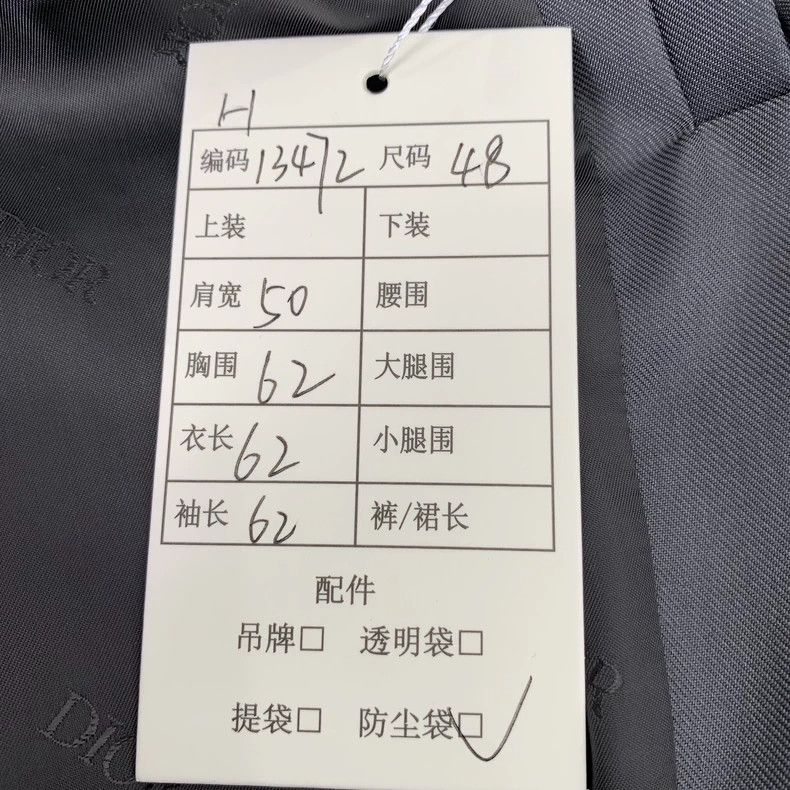 H
编码 13472 尺码 48
上装 下装
肩宽 50 腰围
胸围 62 大腿围
衣长 62 小腿围
袖长 62 裤/裙长
配件
吊牌□ 透明袋□
提袋□ 防尘袋□✓
DIOR